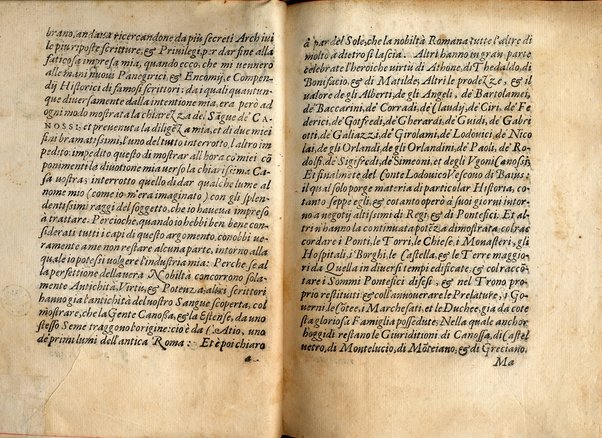 brano, andana ricercendone da più secreti Archiui
le piu riposte scritture, & Priuilegi, per dar fine alla
faticosa impresa mia, quando ecco, che mi uennero
alle mani nuoui Panegirici, & Encomij, e Compen
dij Historici di famosi scrittori: da i quali quantun-
que diuersamente dalla intentione mia, era però ad
ogni modo mostrata la chiarezza del Sãgue de' CA-
NOSSI: et preuenuta la diligẽza mia, et di due miei
sì bramatissimi, l'uno del tutto interrotto, l'altro im
pedito: impedito questo di mostrar all'hora co' miei cõ
ponimenti la diuotione mia uerso la chiarissima Ca
sa uostra; interrotto quello di dar qualche lume al
nome mio (come io m'era imaginato) con gli splen-
dentissimi raggi del soggetto, che io haueua impreso
à trattare. Percioche, quando io hebbi ben bene con
siderati tutti i capi di questo argomento, conobbi ue-
ramente a me non restare alcuna parte, intorno alla
quale io potessi uolgere l'industria mia: Perche, se al
la perfettione della uera Nobiltà concorrono sola-
mente Antichità, Virtu, & Potenza, alcũi scrittori
hanno gia l'antichità del uostro Sangue scoperta, col
mostrare, che la Gente Canossa, & la Estense, da uno
stesso Seme traggono origine: cioè da C. Atio, uno
de' primi lumi dell'antica Roma: Et è poi chiaro
a
à par del Sole, che la nobiltà Romana tutte l'altre di
molto a dietro si lascia. Altri hanno in gran parte
celebrate l'heroiche uirtù di Athone, di Thedaldo, di
Bonifacio, & di Matilde, Altri le prodezze, & il
ualore de gli Alberti, de gli Angeli, de' Bartolamei,
de' Baccarini, de' Corradi, de' Claudij, de' Ciri, de' Fe
derici, de' Gotfredi, de' Gherardi, de' Guidi, de' Gabri
otti, de' Galiazzi, de' Girolami, de' Lodouici, de' Nico
lai, de gli Orlandi, de gli Orlandini, de' Paoli, de' Ro-
dolfi, de' Sigifredi, de' Simeoni, et de gli Vgoni Canossi;
Et finalmẽte del Conte Lodouico Vescouo di Baius: il
il qual solo porge materia di particolar Historia, co-
tanto seppe egli, & cotanto operò a' suoi giorni intor-
no a negotij altissimi di Regi, & di Pontefici. Et al-
tri n hanno la continuata potẽza dimostrata, col rac
cordare i Ponti, le Torri, le Chiese, i Monasteri, gli
Hospitali, i Borghi, le Castella, & le Terre maggio-
ri da Quella in diuersi tempi edificate, & col racco-
tare i Sommi Pontefici difesi, & nel Trono pro-
prio restituiti: & coll'annouerare le Prelature, i Go-
uerni le Cõtee, i Marchesati, et le Duchee, gia da cote
sta gloriosa Famiglia possedute. Nella quale anchor
hoggidi restano le Giuriditioni di Canossa, di Castel
uetro, di Montelucio, di Mõteiano, & di Greciano.
Ma